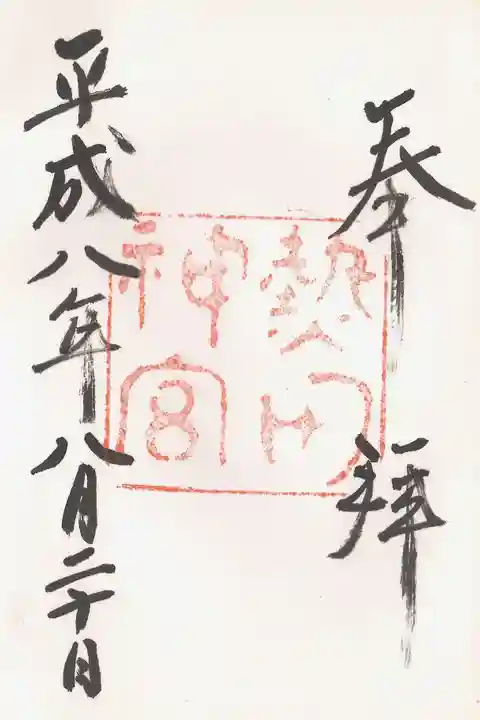 奉拝
熱田神宮
平成八年八月二十日